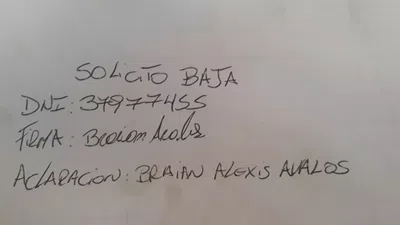 SOLICITO BAJA
DNI: 37977455
FIRMA: Braian Avalos
ACLARACION: BRAIAN ALEXIS AVALOS